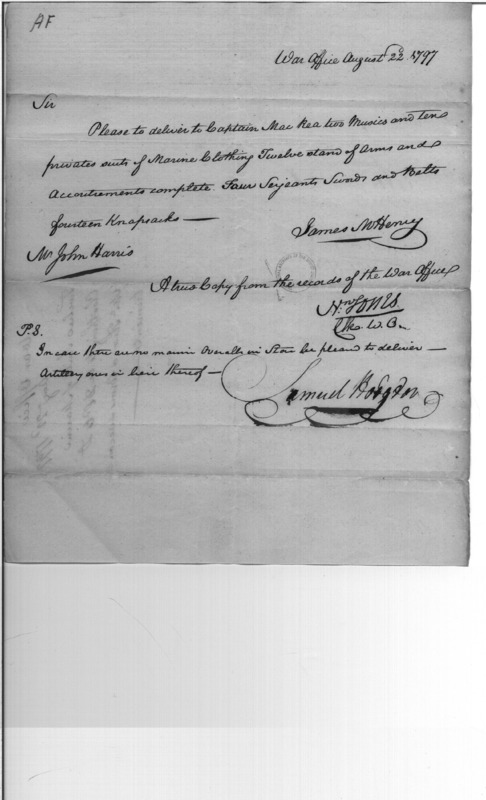 AF
War Office August 22d 1797
Sir
Please to deliver to Captain Mac Rea two Musics and ten
privates suits of Marine Clothing Twelve stand of Arms and
Accoutrements complete. Four Serjeants Swords and Belts
fourteen Knapsacks —
James McHenry
Mr John Harris
A true Copy from the records of the War Office
Hn Jones.
Ck. W. O.
P.S.
In case there are no marine Overalls in Store be pleased to deliver —
Artillery ones in lieu thereof —
Samuel Hodgdon